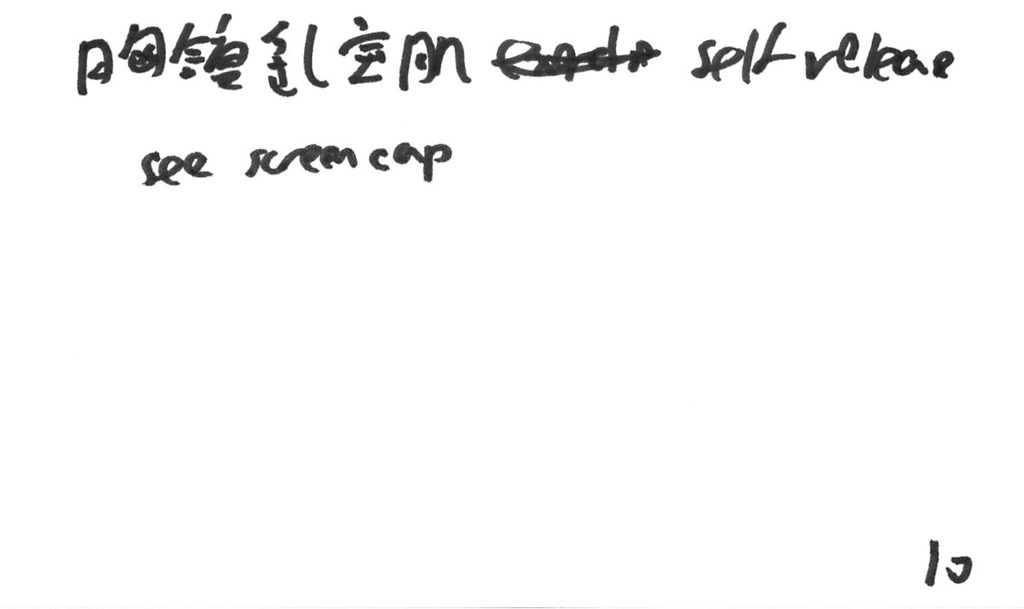 胸鎖乳突肌 self release
see screen cap
10